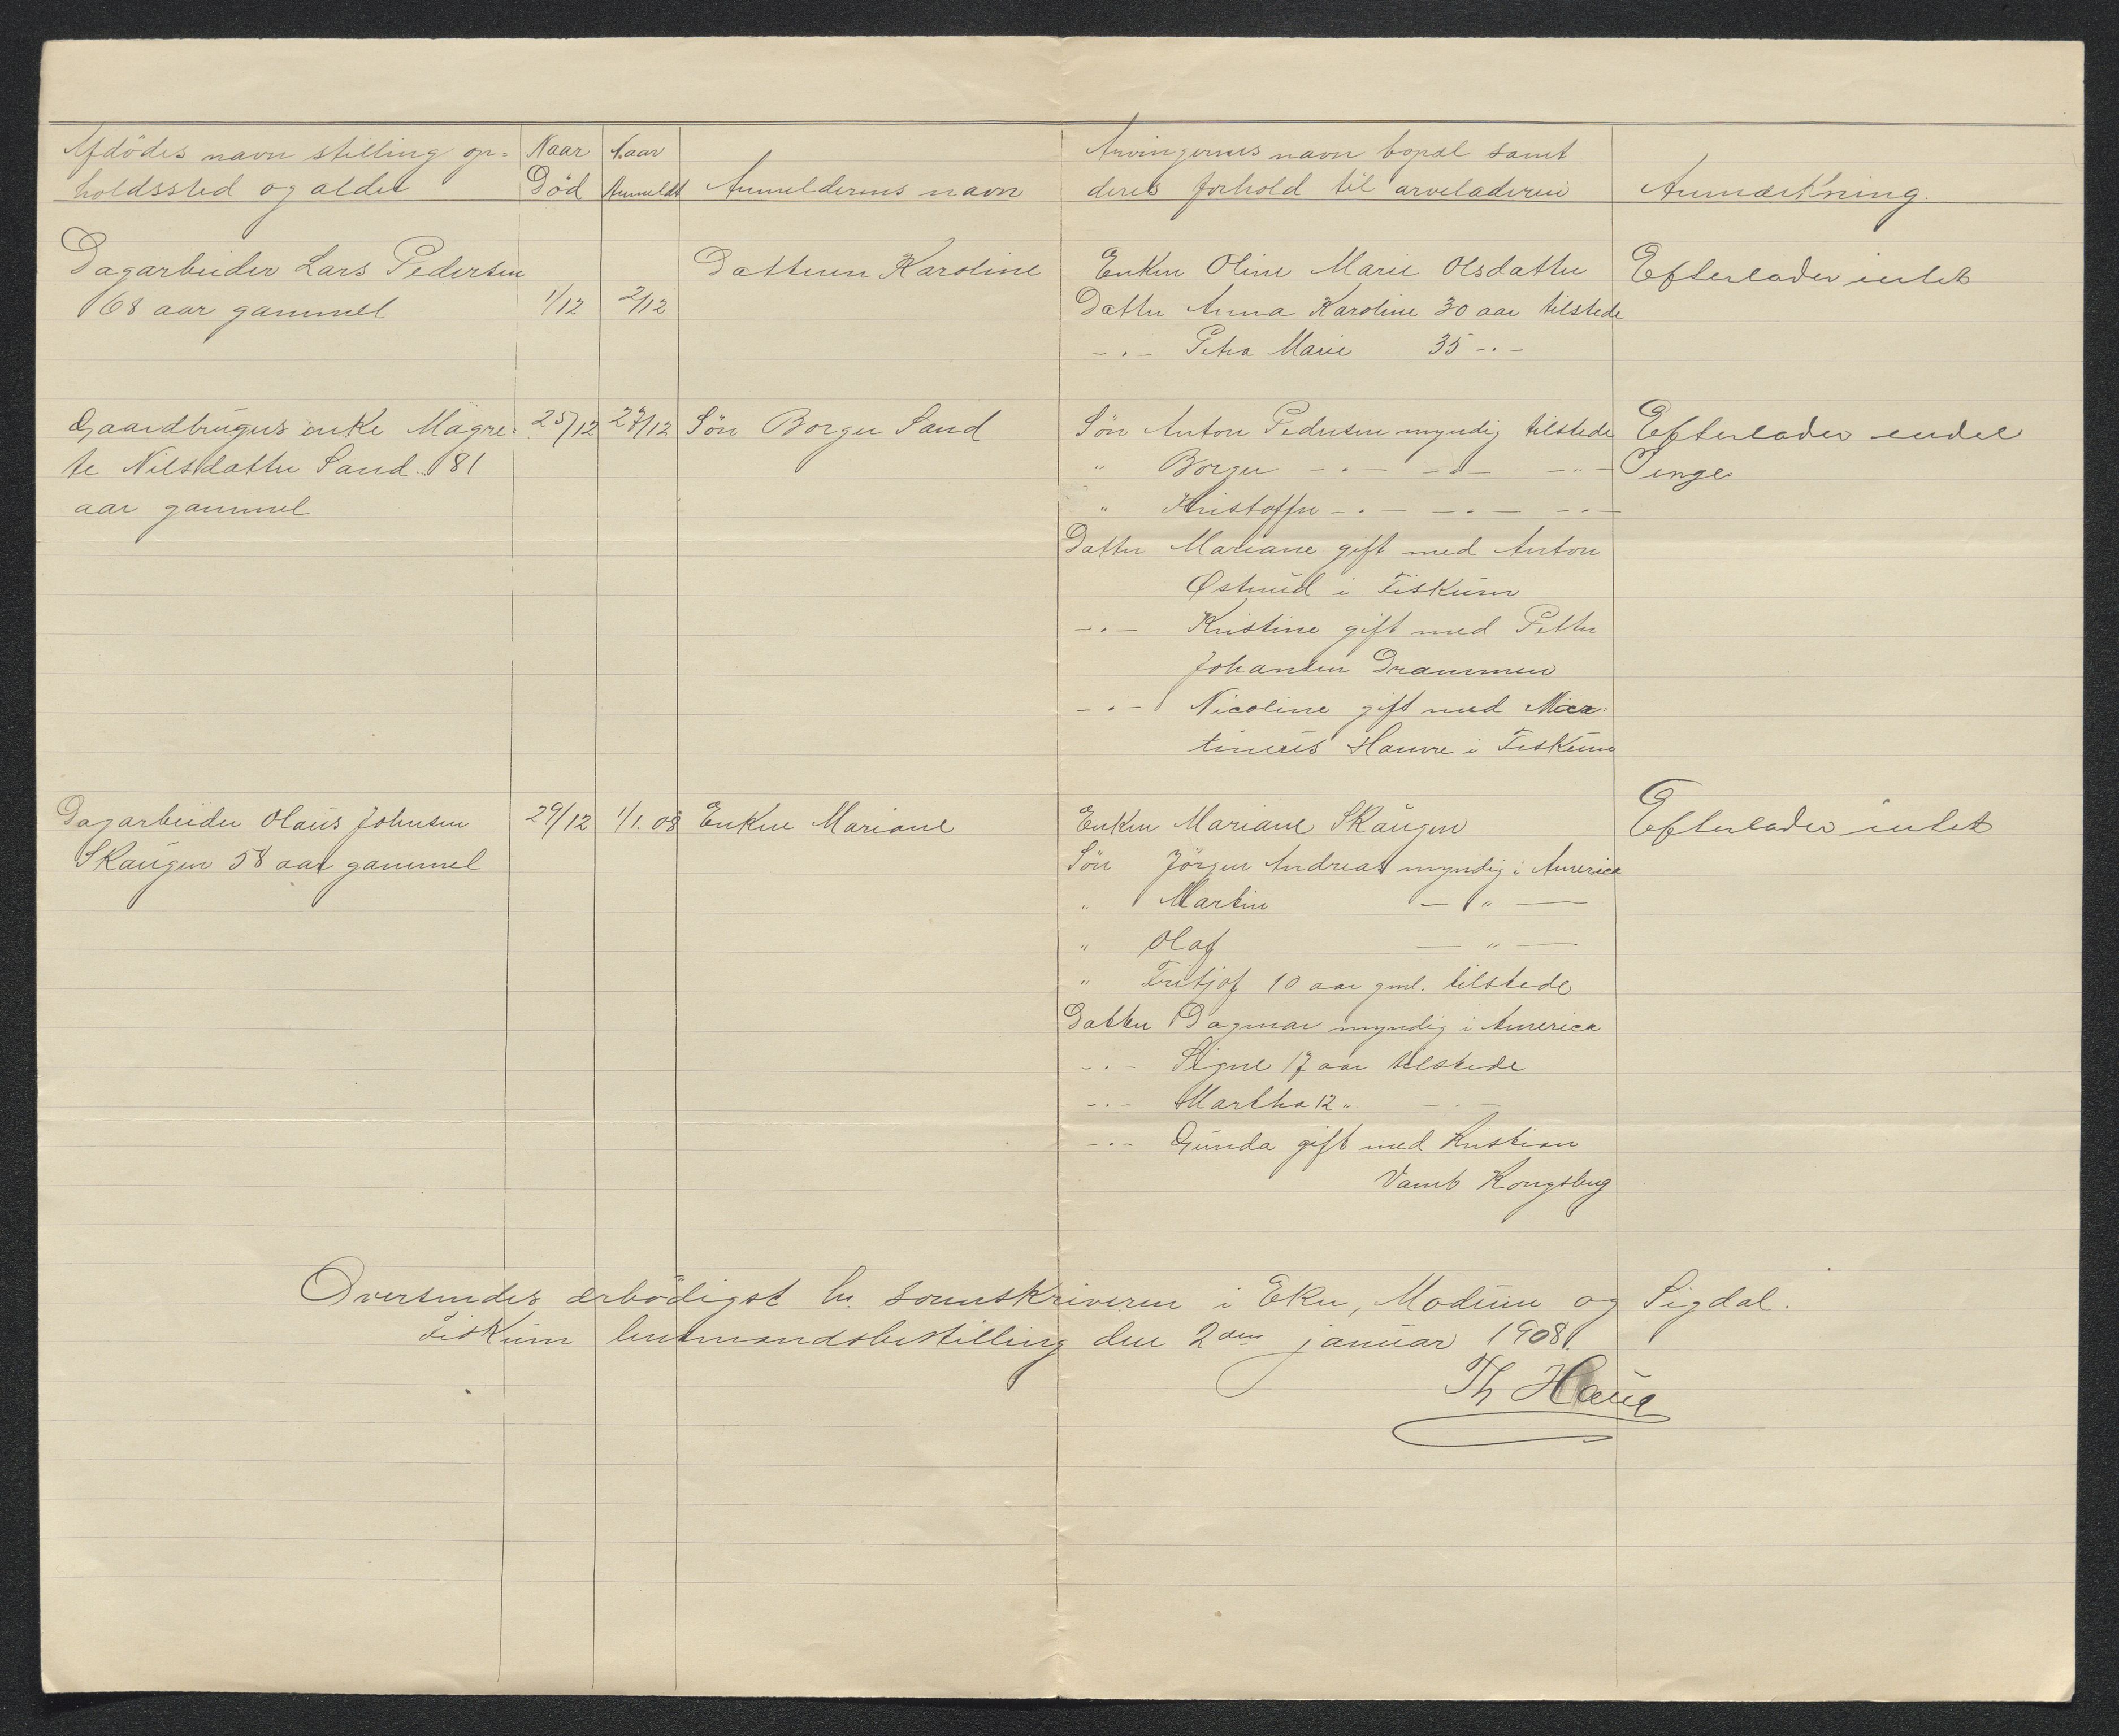 Afdödes navn stilling op=
holdssted og alder
Naar
Död
Naar
Anmeldt
Anmelderens navn
Arvingernes navn bopæl samt
deres forhold til arveladeren
Anmærkning.
Dagarbeider Lars Pedersen
68 aar gammel
1/12
2/12
Datteren Karoline
Enken Oline Marie Olsdatter
Datter Anna Karoline 30 aar tilstede
-.- Petra Marie 35 -.-
Efterlader intet
Gaardbrugers enke Magre=
te Nilsdatter Sand 81
aar gammel
25/12
27/12
Sön Borger Sand
Sön Anton Pedersen myndig tilstede
" Borger -.- -.- -.-
" Kristoffer -.- -.- -.-
Datter Mariane gift med Anton
Østerud i Fiskum
-.- Kristine gift med Petter
Johansen Drammen
-.- Nicoline gift med Mar=
tinius Hamre i Fiskum
Efterlader endel
Penge
Dagarbeider Olaus Johnsen
Skaugen 58 aar gammel
29/12
1/1. 08
Enken Mariane
Enken Mariane Skaugen
Sön Jörgen Andreas myndig i America
" Martin — " —
" Olaf — " —
" Fritjof 10 aar gml. tilstede
Datter Dagmar myndig i America
-.- Signe 17 aar tilstede
-.- Martha 12 " -.-
-.- Gunda gift med Kristian
Vamb Kongsberg
Efterlader intet
Oversendes ærbödigst hr. sorenskriveren i Eker, Modum og Sigdal.
Fiskum lensmandsbestilling den 2den januar 1908.
Th Haug